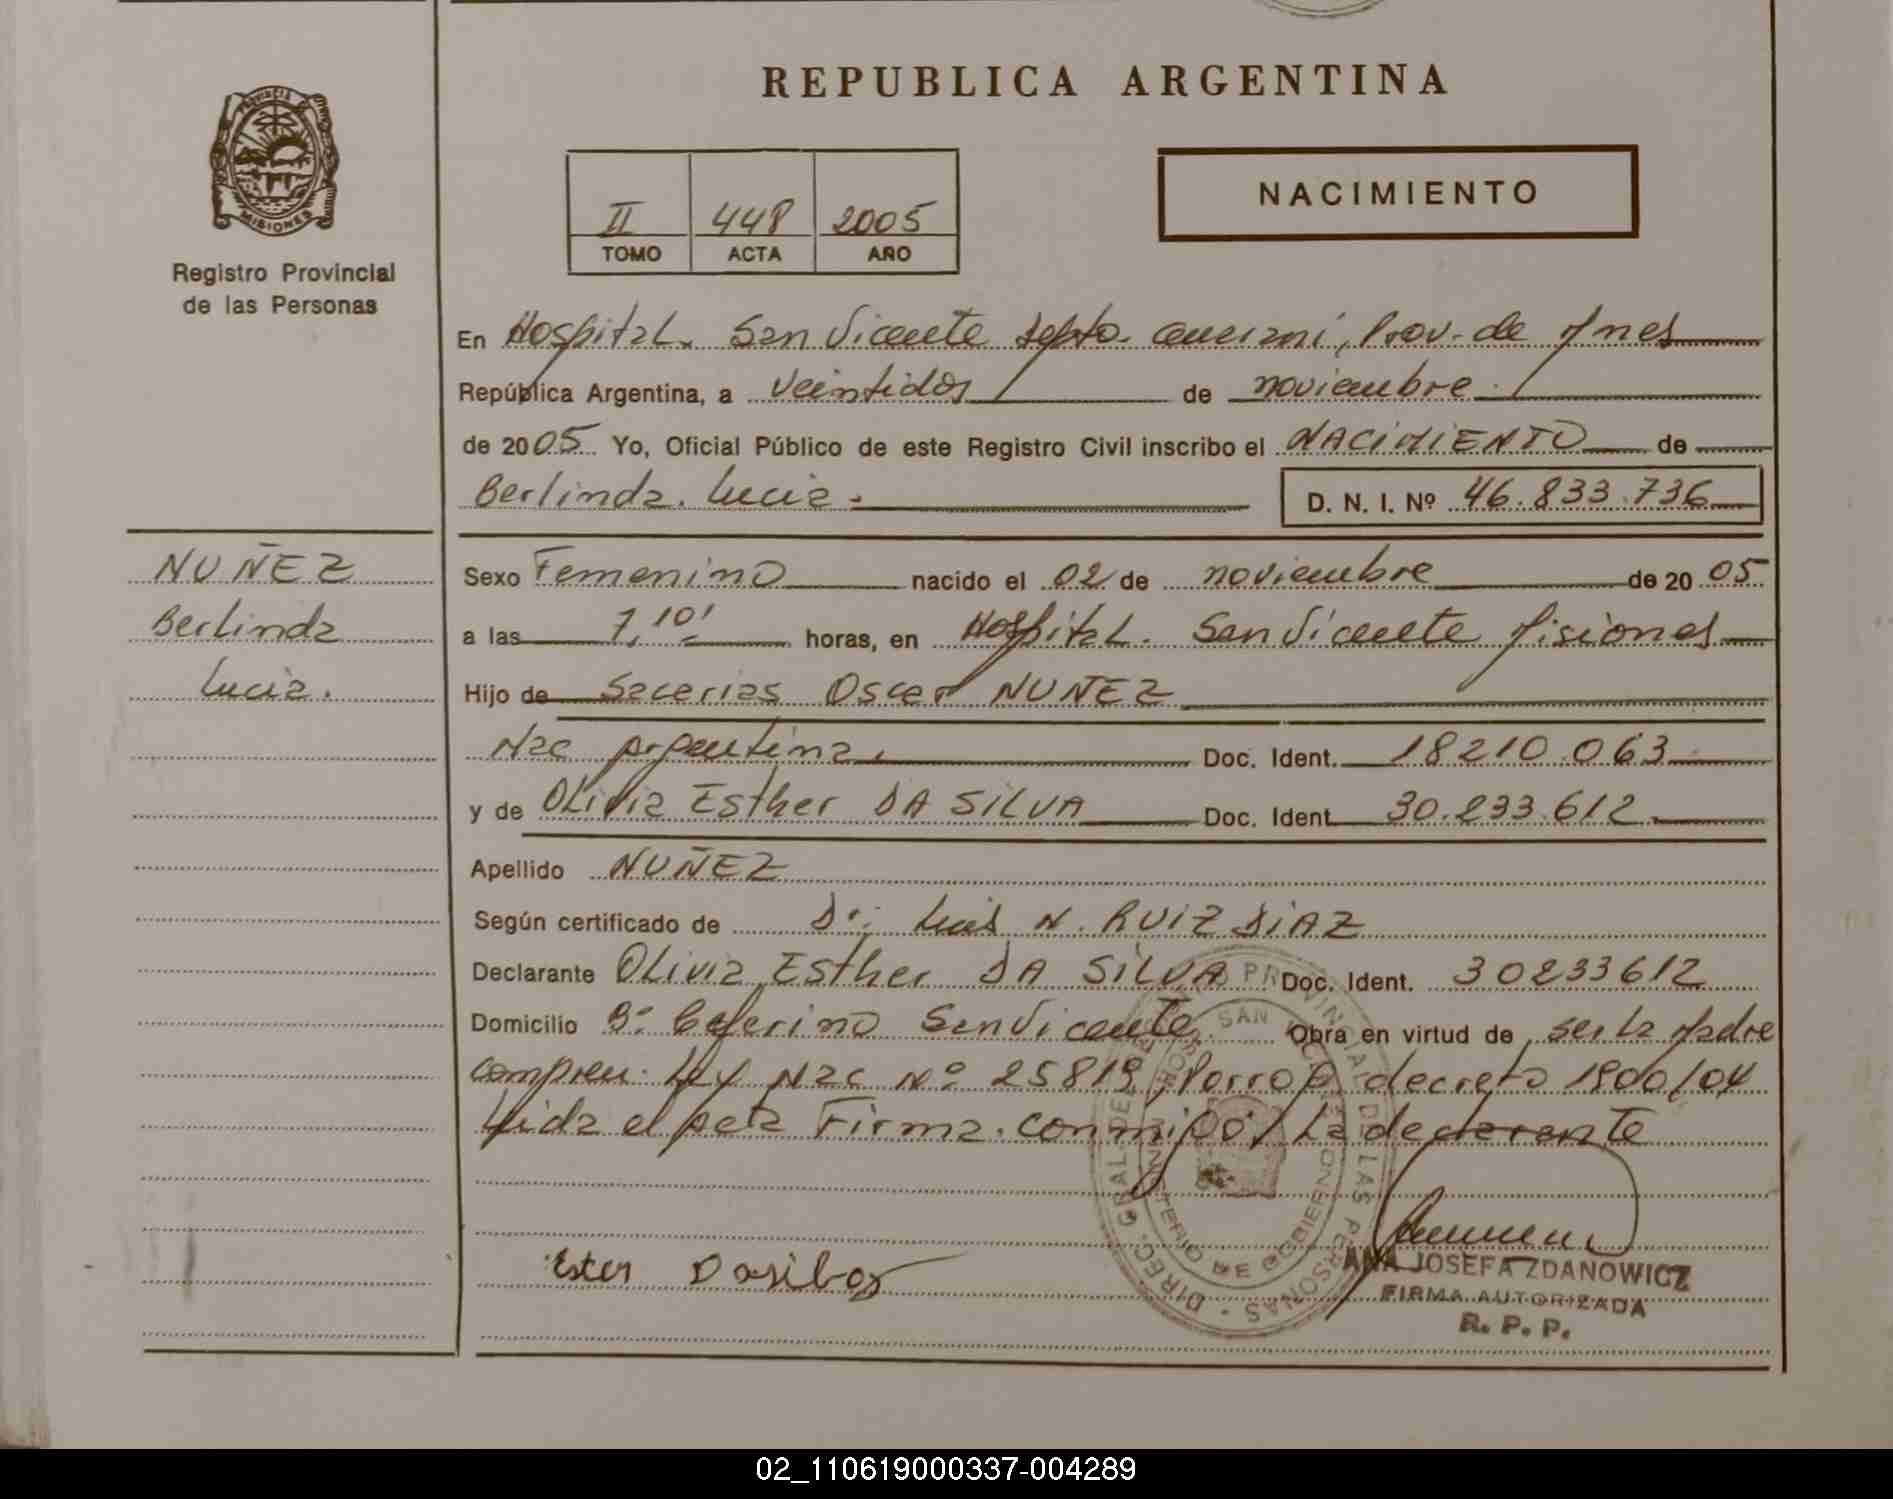 REPUBLICA ARGENTINA
PROVINCIA DE
MISIONES
Registro Provincial
de las Personas
II 448 2005
TOMO ACTA AÑO
NACIMIENTO
En Hospital. San Vicente Depto. Guaraní, Prov. de Mnes
República Argentina, a veintidos de noviembre.
de 2005 Yo, Oficial Público de este Registro Civil inscribo el NACIMIENTO de
Berlinda. Lucia. D. N. I. Nº 46.833.736
NUÑEZ
Berlinda
Lucia.
Sexo Femenino nacido el 02 de noviembre de 20 05
a las 7,10' horas, en Hospital. San Vicente Misiones
Hijo de Sacarias Oscar NUÑEZ
Nac Argentina. Doc. Ident. 18210.063
y de Olivia Esther DA SILVA Doc. Ident. 30.233.612
Apellido NUÑEZ
Según certificado de Dr: Luis N. RUIZ DIAZ
Declarante Olivia Esther DA SILVA Doc. Ident. 30233612
Domicilio Bº Ceferino San Vicente. Obra en virtud de ser la Madre
Ley Nac Nº 25819, decreto 1900/04
Leida el acta Firma. conmigo: La declarante
Ester Dasilba
DIREC. GRAL DEL REGISTRO PROVINCIAL DE LAS PERSONAS
SAN VICENTE
MINISTERIO DE GOBIERNO
ANA JOSEFA ZDANOWICZ
FIRMA AUTORIZADA
R. P. P.
02_110619000337-004289